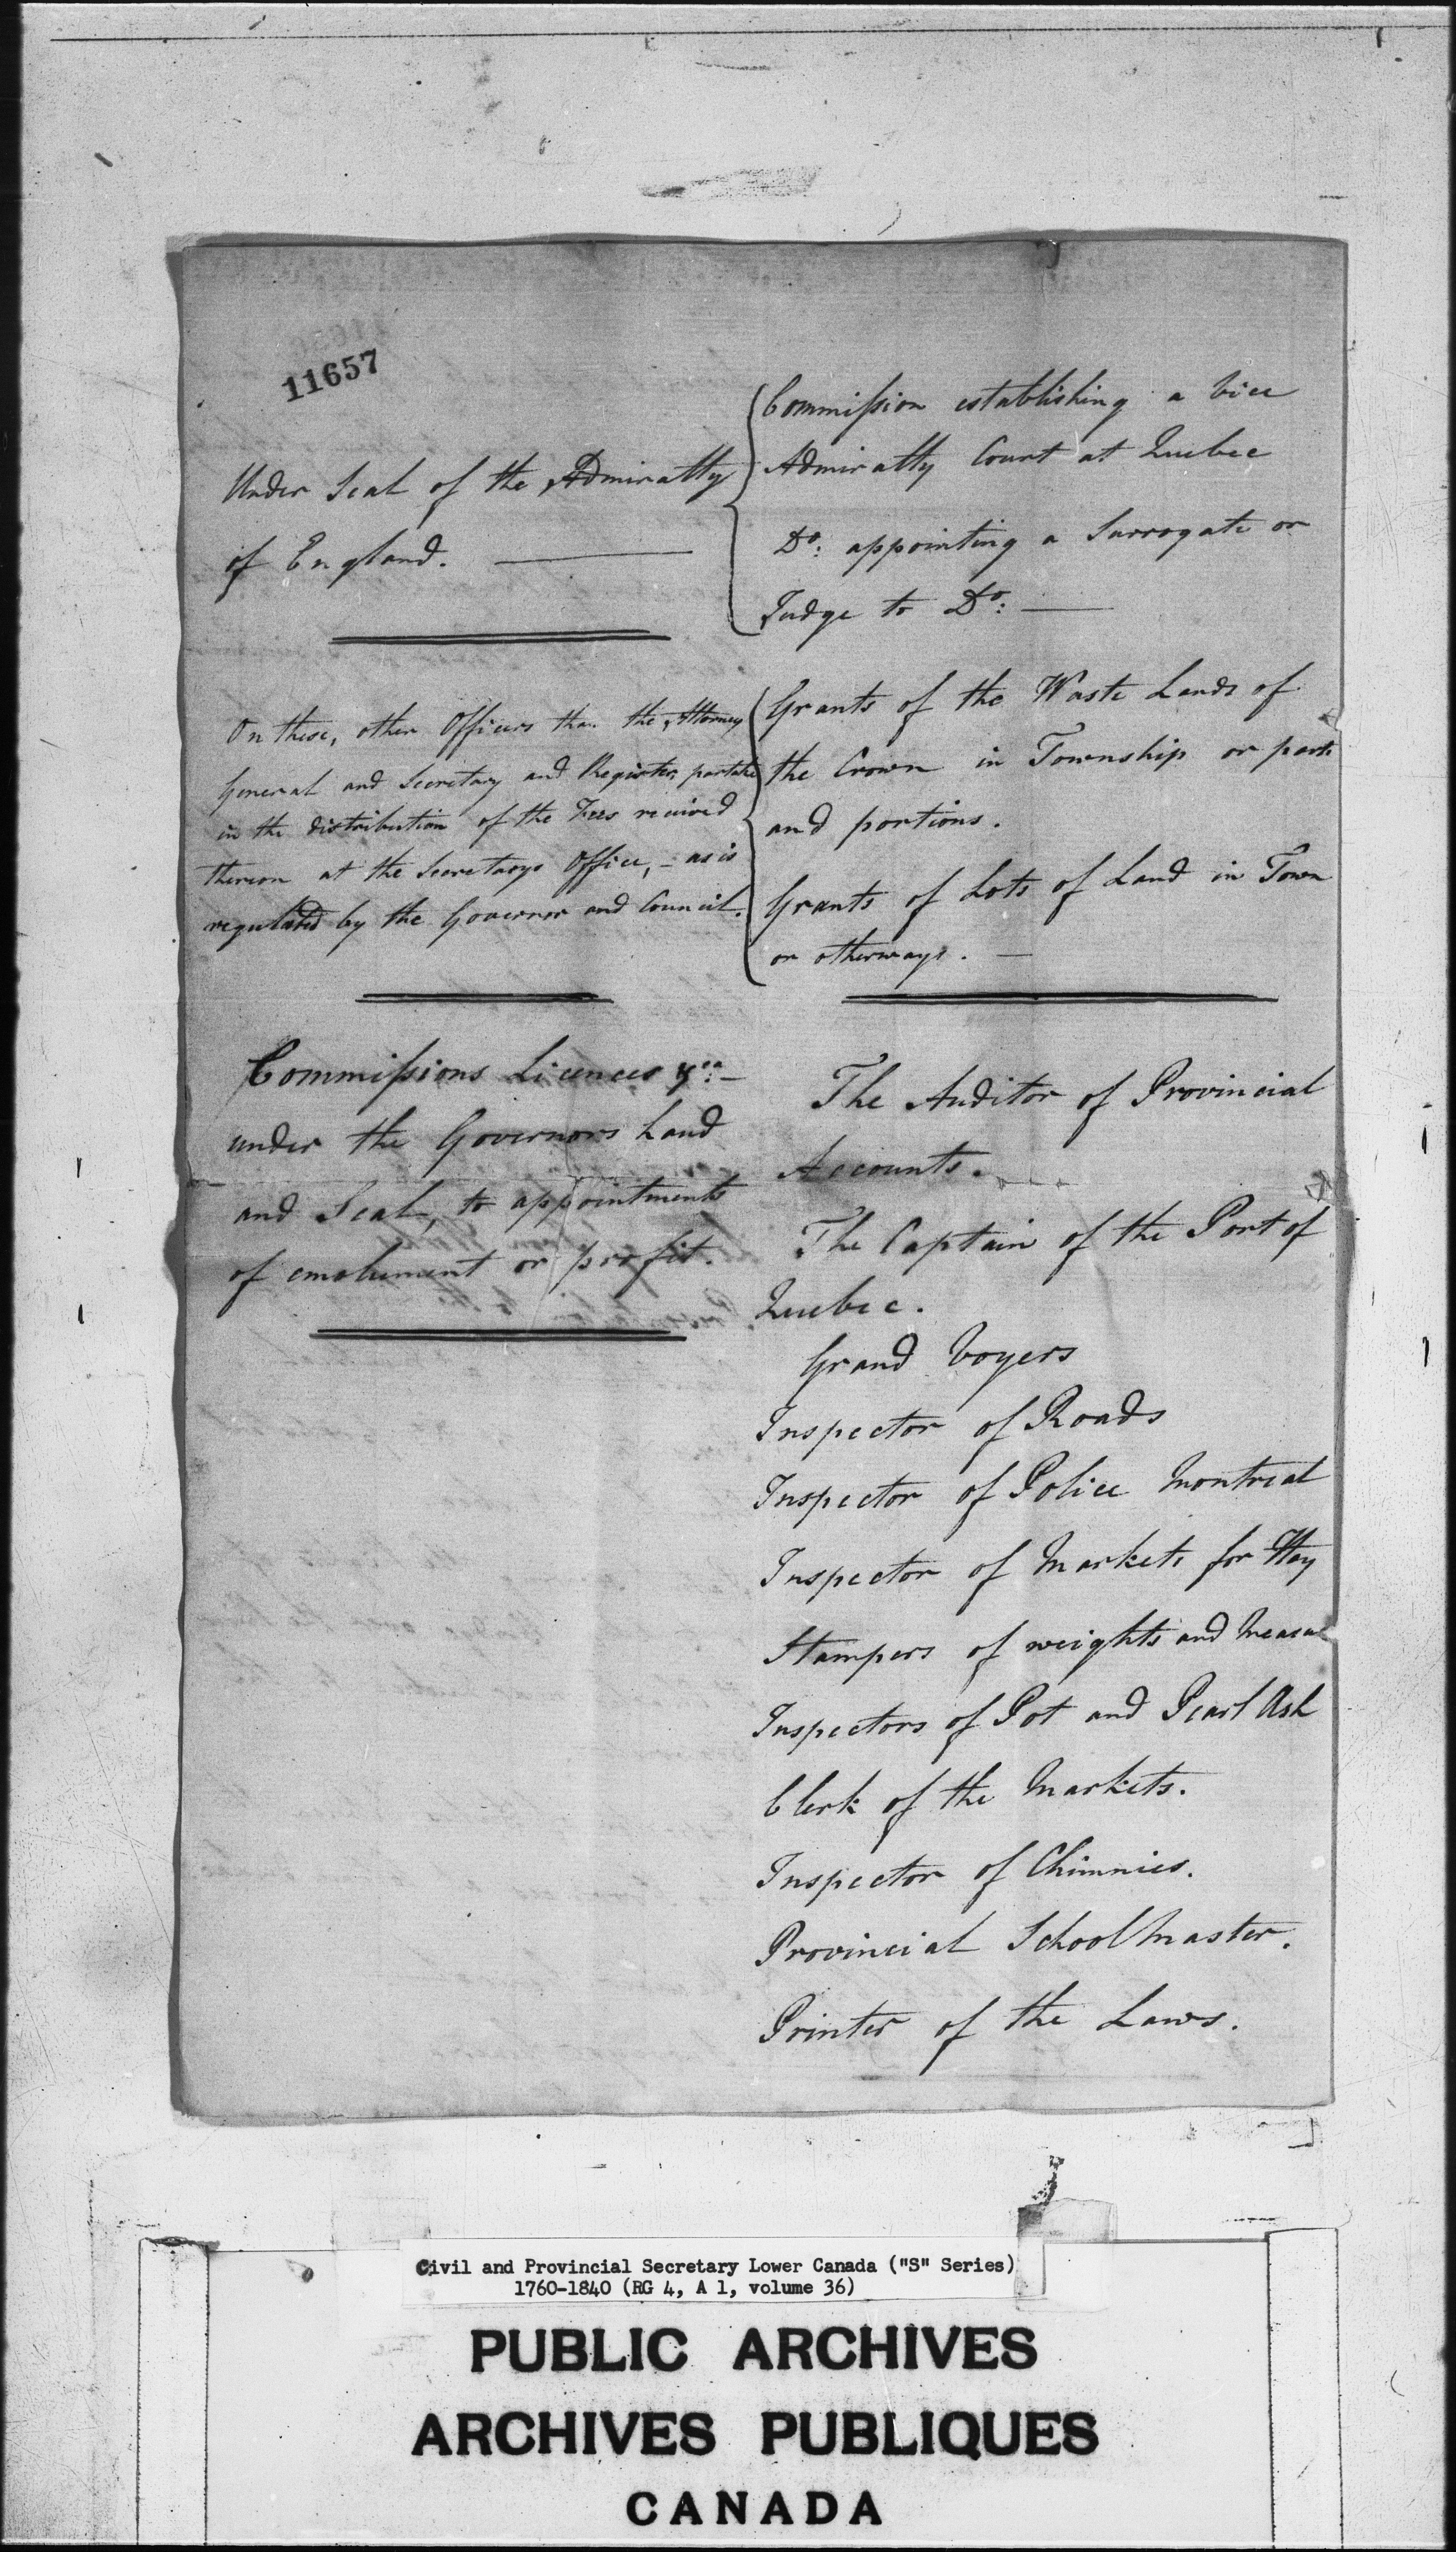 11657
Under Seal of the Admiralty
of England.
Commission establishing a Vice
Admiralty Court at Quebec
Do: appointing a Surrogate or
Judge to Do:
On these, other Officers than the Attorney
General and Secretary and Register partake
in the distribution of the Fees received
thereon at the Secretarys Office, - as is
regulated by the Governor and Council.
Grants of the Waste Lands of
the Crown in Township or parts
and portions.
Grants of Lots of Land in Town
or otherways.
Commissions Licences &ca:
under the Governors hand
and Seal, to appointments
of emolument or profit.
The Auditor of Provincial
Accounts.
The Captain of the Port of
Quebec.
Grand Voyers
Inspector of Roads
Inspector of Police Montreal
Inspector of Markets for Hay
Stampers of weights and Measu
Inspectors of Pot and Pearl Ash
Clerk of the Markets.
Inspector of Chimnies.
Provincial School Master.
Printer of the Laws.
Civil and Provincial Secretary Lower Canada ("S" Series)
1760-1840 (RG 4, A 1, volume 36)
PUBLIC ARCHIVES
ARCHIVES PUBLIQUES
CANADA